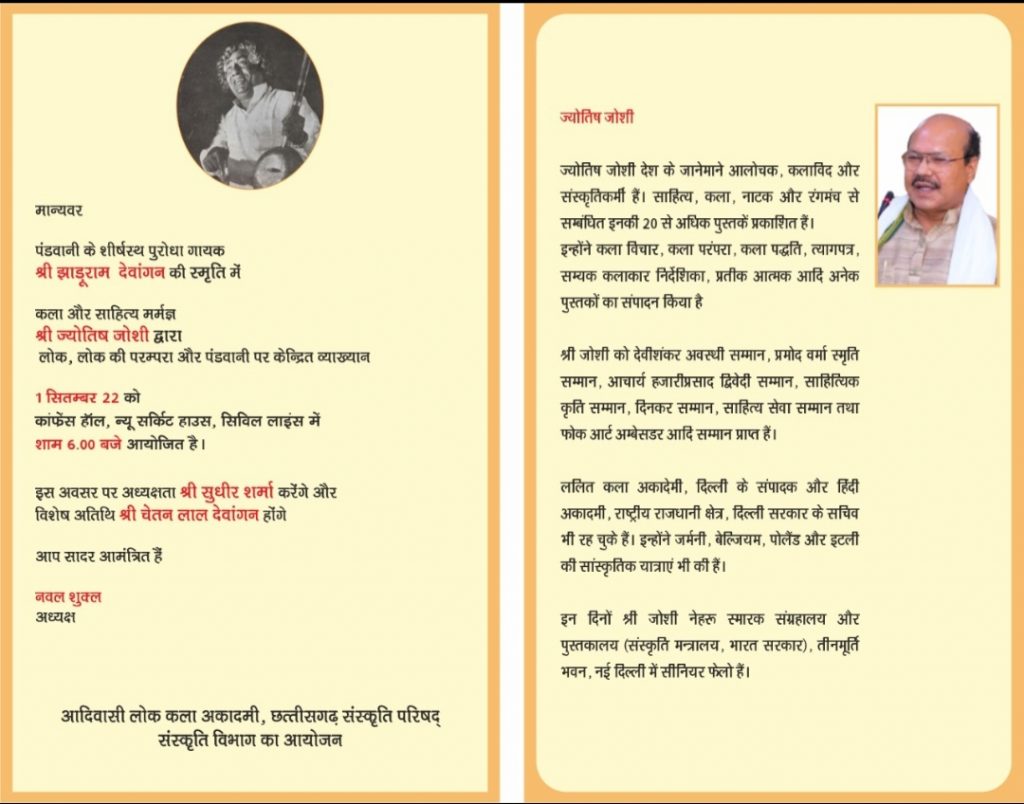 मान्यवर
पंडवानी के शीर्षस्थ पुरोधा गायक
श्री झाड़ूराम देवांगन की स्मृति में
कला और साहित्य मर्मज्ञ
श्री ज्योतिष जोशी द्वारा
लोक, लोक की परम्परा और पंडवानी पर केन्द्रित व्याख्यान
1 सितम्बर 22 को
कांफेंस हॉल, न्यू सर्किट हाउस, सिविल लाइंस में
शाम 6.00 बजे आयोजित है।
इस अवसर पर अध्यक्षता श्री सुधीर शर्मा करेंगे और
विशेष अतिथि श्री चेतन लाल देवांगन होंगे
आप सादर आमंत्रित हैं
नवल शुक्ल
अध्यक्ष
आदिवासी लोक कला अकादमी, छत्तीसगढ़ संस्कृति परिषद्
संस्कृति विभाग का आयोजन
ज्योतिष जोशी
ज्योतिष जोशी देश के जानेमाने आलोचक, कलाविद और
संस्कृतिकर्मी हैं। साहित्य, कला, नाटक और रंगमंच से
सम्बंधित इनकी 20 से अधिक पुस्तकें प्रकाशित हैं।
इन्होंने कला विचार, कला परंपरा, कला पद्धति, त्यागपत्र,
सम्यक कलाकार निर्देशिका, प्रतीक आत्मक आदि अनेक
पुस्तकों का संपादन किया है
श्री जोशी को देवीशंकर अवस्थी सम्मान, प्रमोद वर्मा स्मृति
सम्मान, आचार्य हजारीप्रसाद द्विवेदी सम्मान, साहित्यिक
कृति सम्मान, दिनकर सम्मान, साहित्य सेवा सम्मान तथा
फोक आर्ट अम्बेसडर आदि सम्मान प्राप्त हैं।
ललित कला अकादेमी, दिल्ली के संपादक और हिंदी
अकादमी, राष्ट्रीय राजधानी क्षेत्र, दिल्ली सरकार के सचिव
भी रह चुके हैं। इन्होंने जर्मनी, बेल्जियम, पोलैंड और इटली
की सांस्कृतिक यात्राएं भी की हैं।
इन दिनों श्री जोशी नेहरू स्मारक संग्रहालय और
पुस्तकालय (संस्कृति मन्त्रालय, भारत सरकार), तीनमूर्ति
भवन, नई दिल्ली में सीनियर फेलो हैं।